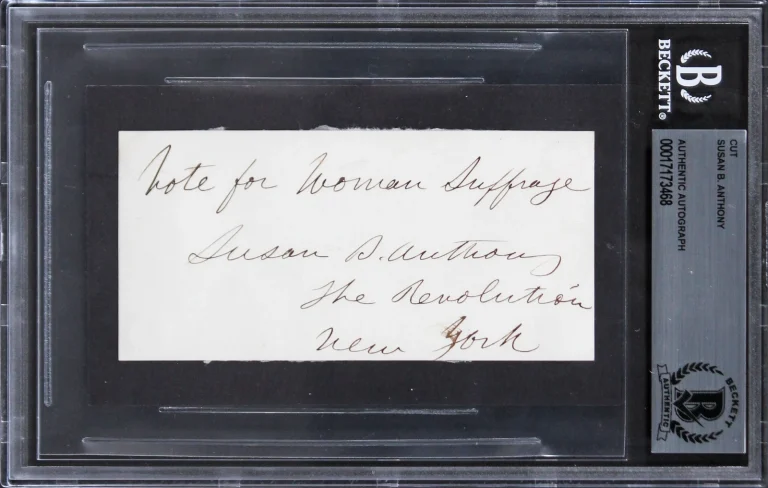 Vote for Woman Suffrage
Susan B. Anthony
The Revolution
New York
BECKETT®
B
CUT
SUSAN B. ANTHONY
AUTHENTIC AUTOGRAPH
00017173468
BECKETT
AUTHENTIC